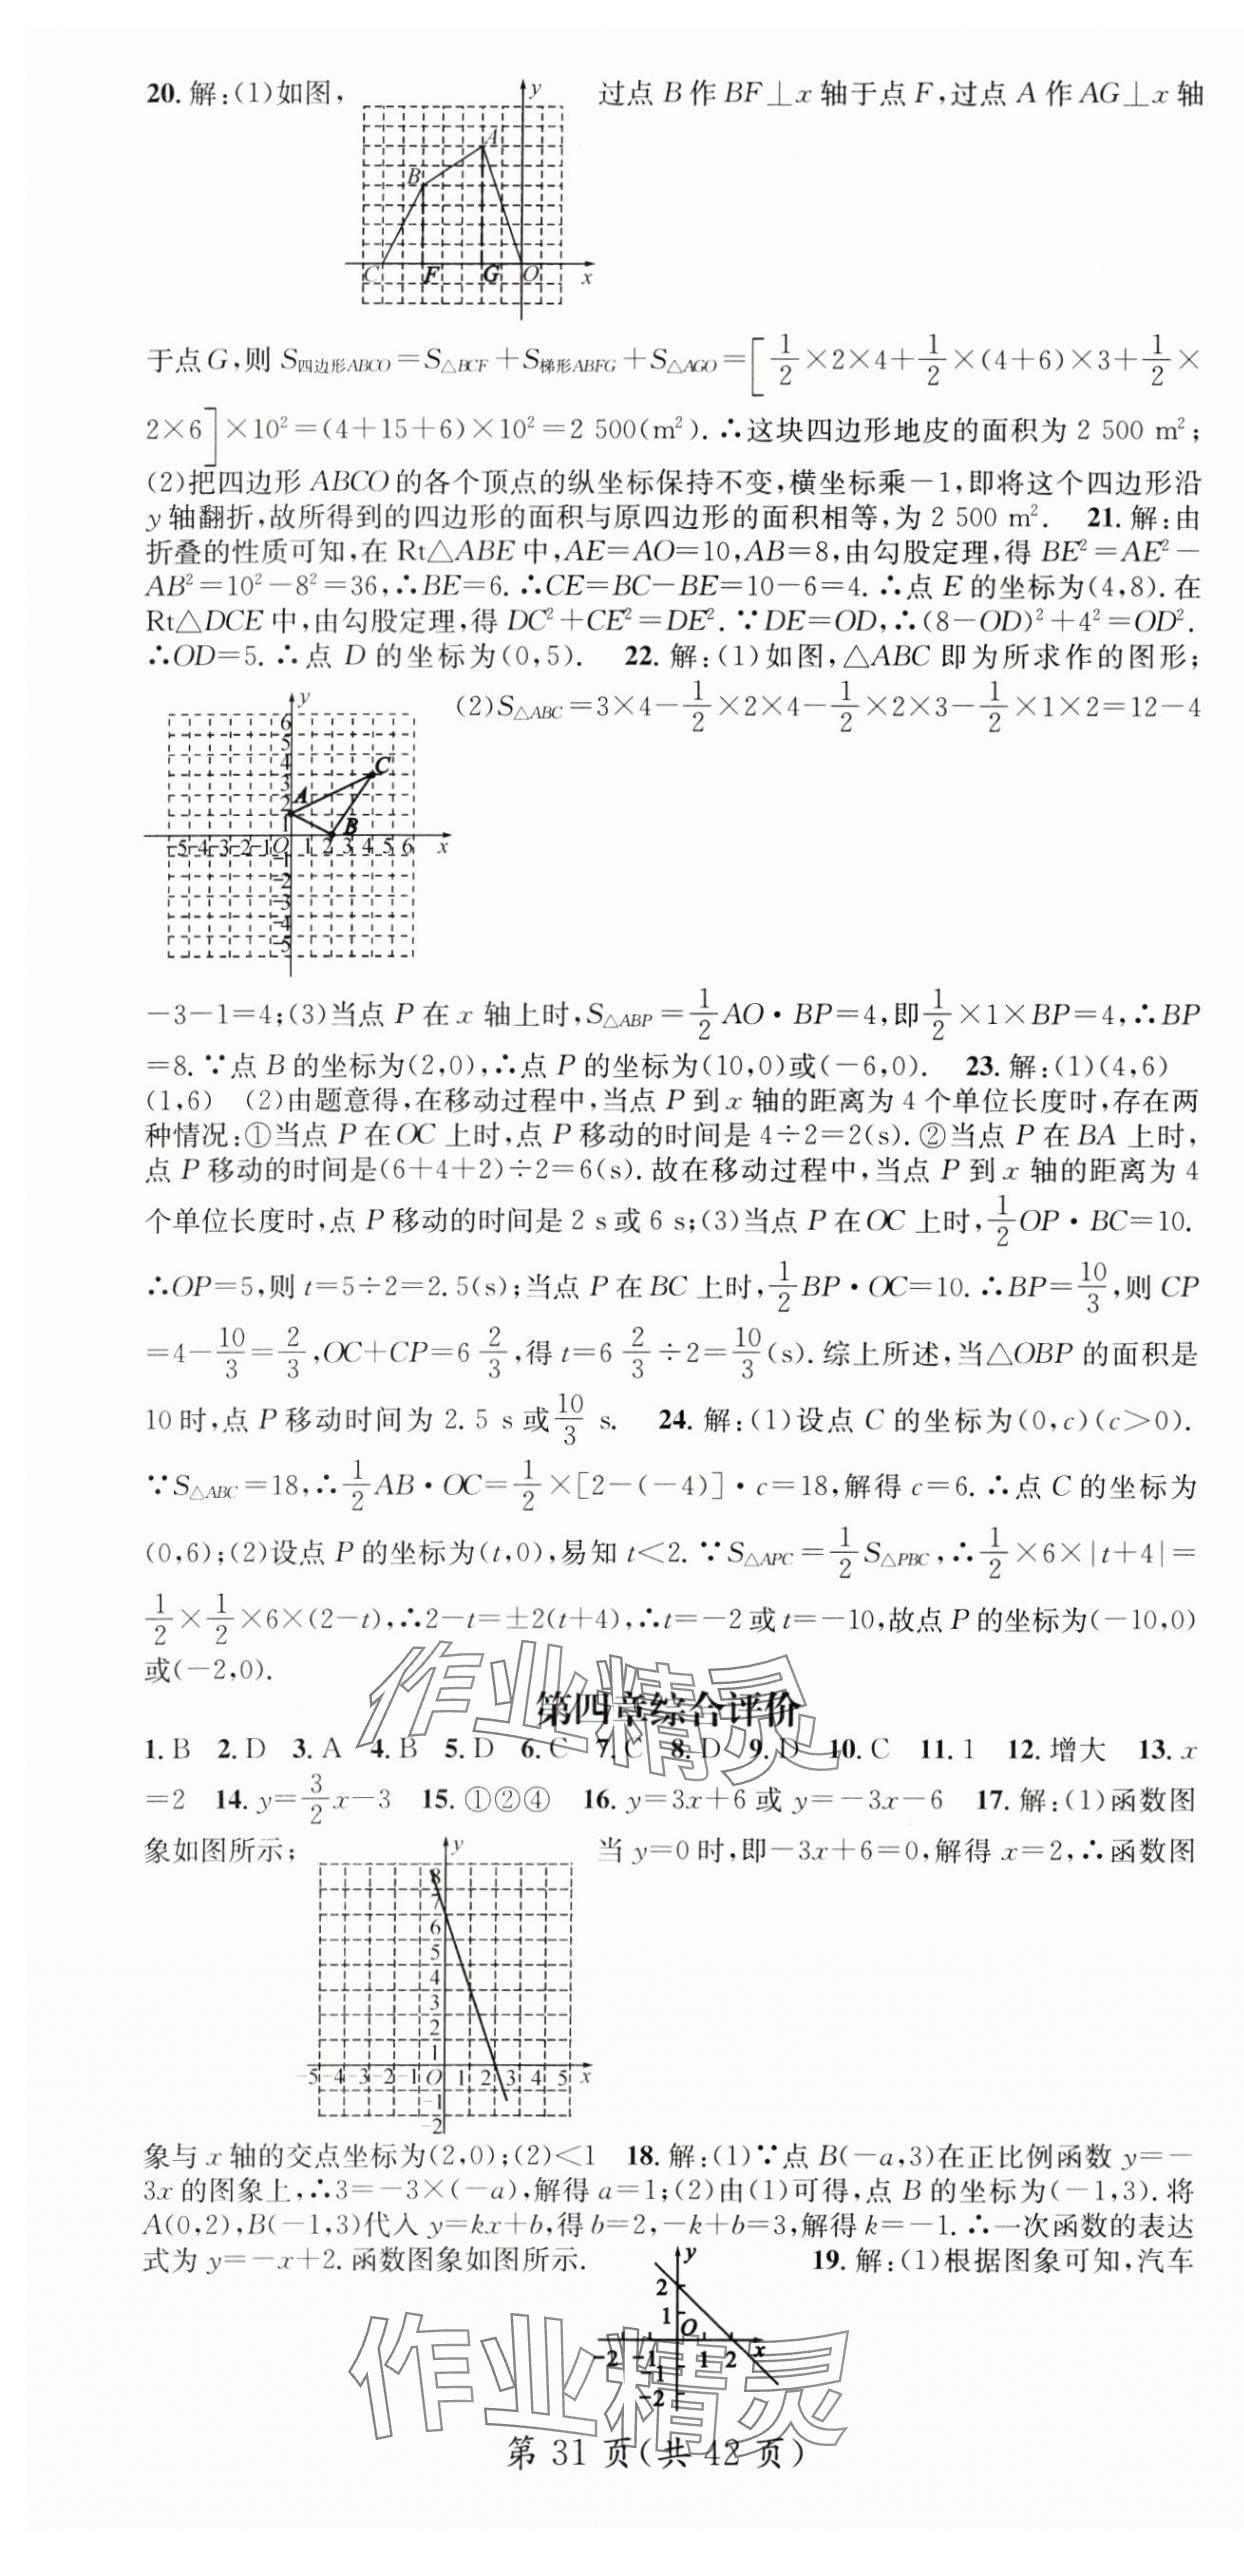 20. 解:(1)如图,
y
A
B
C F G O x
过点 B 作 BF⊥x 轴于点 F,过点 A 作 AG⊥x 轴
于点 G,则 S四边形ABCO=S△BCF+S梯形ABFG+S△AGO=[1/2×2×4+1/2×(4+6)×3+1/2×
2×6]×10²=(4+15+6)×10²=2 500(m²).∴这块四边形地皮的面积为 2 500 m²;
(2)把四边形 ABCO 的各个顶点的纵坐标保持不变,横坐标乘-1,即将这个四边形沿
y 轴翻折,故所得到的四边形的面积与原四边形的面积相等,为 2 500 m². 21. 解:由
折叠的性质可知,在 Rt△ABE 中,AE=AO=10,AB=8,由勾股定理,得 BE²=AE²-
AB²=10²-8²=36,∴BE=6.∴CE=BC-BE=10-6=4.∴点 E 的坐标为(4,8).在
Rt△DCE 中,由勾股定理,得 DC²+CE²=DE².∵DE=OD,∴(8-OD)²+4²=OD².
∴OD=5.∴点 D 的坐标为(0,5). 22. 解:(1)如图,△ABC 即为所求作的图形;
y
6
5
4
3
2
1
A
B
C
-5-4-3-2-1O 1 2 3 4 5 6 x
-1
-2
-3
-4
-5
(2)S△ABC=3×4-1/2×2×4-1/2×2×3-1/2×1×2=12-4
-3-1=4;(3)当点 P 在 x 轴上时,S△ABP=1/2AO·BP=4,即1/2×1×BP=4,∴BP
=8.∵点 B 的坐标为(2,0),∴点 P 的坐标为(10,0)或(-6,0). 23. 解:(1)(4,6)
(1,6) (2)由题意得,在移动过程中,当点 P 到 x 轴的距离为 4 个单位长度时,存在两
种情况:①当点 P 在 OC 上时,点 P 移动的时间是 4÷2=2(s).②当点 P 在 BA 上时,
点 P 移动的时间是(6+4+2)÷2=6(s).故在移动过程中,当点 P 到 x 轴的距离为 4
个单位长度时,点 P 移动的时间是 2 s 或 6 s;(3)当点 P 在 OC 上时,1/2OP·BC=10.
∴OP=5,则 t=5÷2=2.5(s);当点 P 在 BC 上时,1/2BP·OC=10.∴BP=10/3,则 CP
=4-10/3=2/3,OC+CP=6 2/3,得 t=6 2/3÷2=10/3(s).综上所述,当△OBP 的面积是
10 时,点 P 移动时间为 2.5 s 或10/3 s. 24. 解:(1)设点 C 的坐标为(0,c)(c>0).
∵S△ABC=18,∴1/2AB·OC=1/2×[2-(-4)]·c=18,解得 c=6.∴点 C 的坐标为
(0,6);(2)设点 P 的坐标为(t,0),易知 t<2.∵S△APC=1/2S△PBC,∴1/2×6×|t+4|=
1/2×1/2×6×(2-t),∴2-t=±2(t+4),∴t=-2 或 t=-10,故点 P 的坐标为(-10,0)
或(-2,0).
作业精灵
第四章综合评价
1. B 2. D 3. A 4. B 5. D 6. C 7. C 8. D 9. D 10. C 11. 1 12. 增大 13. x
=2 14. y=3/2x-3 15. ①②④ 16. y=3x+6 或 y=-3x-6 17. 解:(1)函数图
象如图所示;
y
8
7
6
5
4
3
2
1
-5-4-3-2-1O 1 2 3 4 5 x
-1
-2
当 y=0 时,即-3x+6=0,解得 x=2,∴函数图
象与 x 轴的交点坐标为(2,0);(2)<1 18. 解:(1)∵点 B(-a,3)在正比例函数 y=-
3x 的图象上,∴3=-3×(-a),解得 a=1;(2)由(1)可得,点 B 的坐标为(-1,3).将
A(0,2),B(-1,3)代入 y=kx+b,得 b=2,-k+b=3,解得 k=-1.∴一次函数的表达
式为 y=-x+2.函数图象如图所示.
y
2
1
O
-2 -1 1 2 x
-1
-2
19. 解:(1)根据图象可知,汽车
作业精灵
第 31 页(共 42 页)